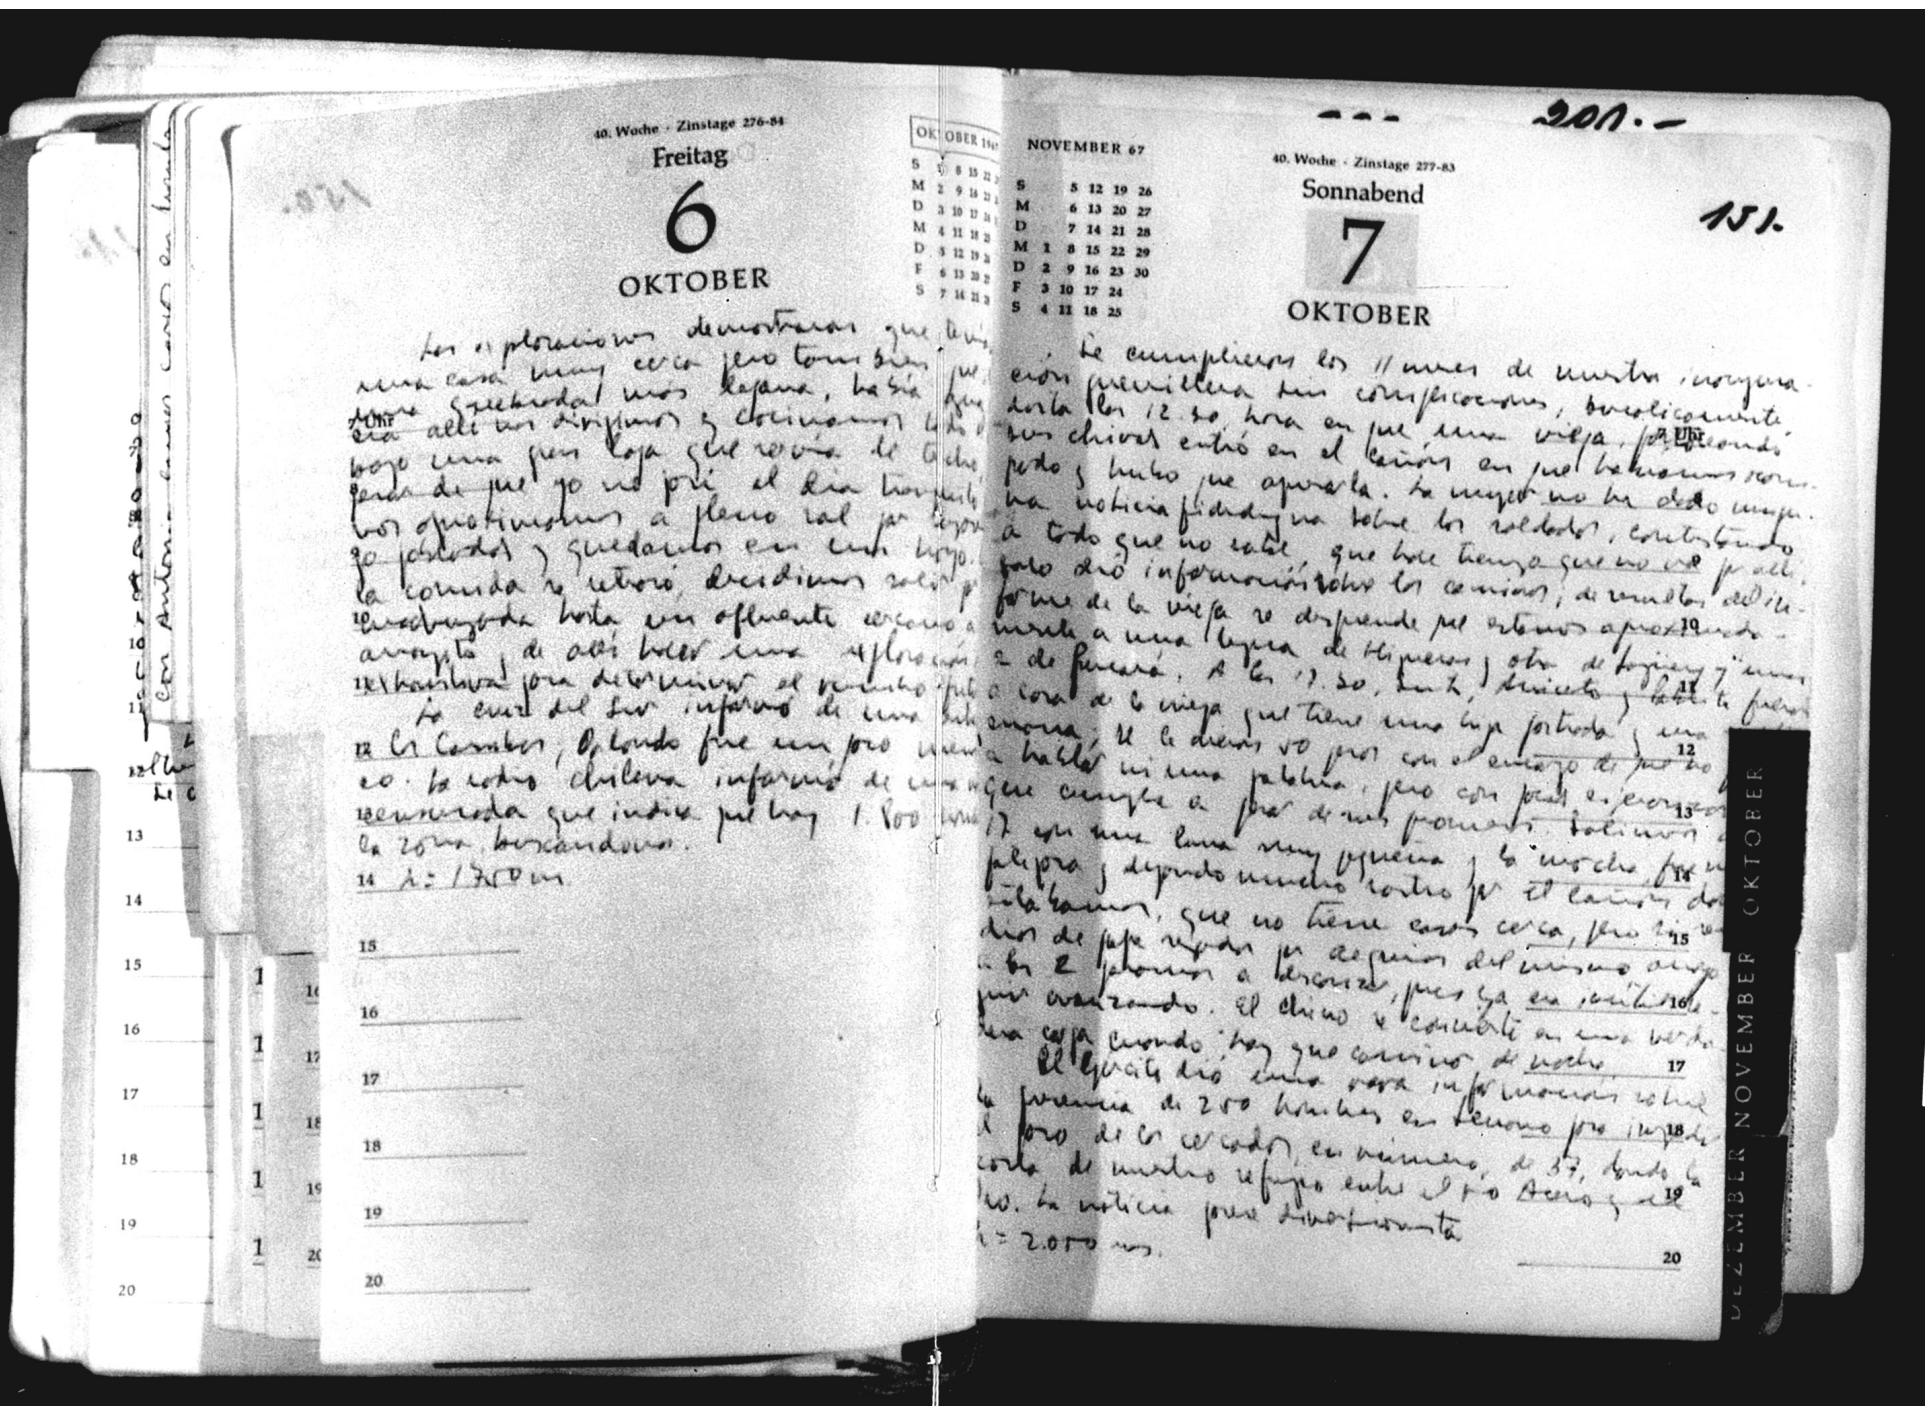 40. Woche · Zinstage 276-84
Freitag
6
OKTOBER
OKTOBER 196
S 1 8 15 22
M 2 9 16 23
D 3 10 17 24
M 4 11 18 25
D 5 12 19 26
F 6 13 20 27
S 7 14 21 28
150.
Las exploraciones demostraron que tenía
una casa muy cerca pero también que
quebrada más lejana, había agua
7 Uhr
cia allí nos dirigimos y cocinamos todo
bajo una gran laja que servía de techo,
8 pesar de que yo no pasé el día tranquilo
nos aproximamos a pleno sol por lugar
9 go poblados y quedamos en un hoyo.
la comida se retrasó, decidimos salir p
10 madrugada hasta un afluente cercano a
arroyito y de allí hacer una exploración
11 exhaustiva para determinar el rumbo futu
La cruz del Sur informó de una entre
12 los Cambas; Orlando fue un poco men
co. La radio chilena informó de una n
13 censurada que indica que hay 1.800 hom
la zona buscándonos.
14 h= 1750 m
15
16
17
18
19
20
NOVEMBER 67
S 5 12 19 26
M 6 13 20 27
D 7 14 21 28
M 1 8 15 22 29
D 2 9 16 23 30
F 3 10 17 24
S 4 11 18 25
40. Woche · Zinstage 277-83
Sonnabend
7
OKTOBER
201.-
151.
Se cumplieron los 11 meses de nuestra inaugura-
ción guerrillera sin complicaciones, bucólicamente
hasta las 12.30, hora en que una vieja, pastoreando
7 Uhr
sus chivas entró en el cañón en que habíamos acam-
pado y hubo que apresarla. La mujer no ha dado ningu-
na noticia fidedigna sobre los soldados, contestando
a todo que no sabe, que hace tiempo que no va por allí,
solo dió información sobre los caminos; de resultas del in-
forme de la vieja se desprende que estamos aproximada-
10
mente a una legua de Higueras y otra de Jagüey y unas
2 de Pucará. A las 17.30, Inti, Aniceto y Pablito fueron
11
a casa de la vieja que tiene una hija postrada y una
enana; se le dieron 50 pesos con el encargo de que no
12
a hablar ni una palabra, pero con pocas esperanzas
que cumpla a pesar de sus promesas. Salimos
13
17 con una luna muy pequeña y la marcha fue m
14
fatigosa y dejando mucho rastro por el cañón don
estábamos, que no tiene casas cerca, pero sí
15
díos de papa regados por acequias del mismo arroyo
a las 2 paramos a descansar, pues ya era inútil se-
16
guir avanzando. El chino se convierte en una verda
dera carga cuando hay que caminar de noche
17
El Ejército dió una rara información sobre
la presencia de 250 hombres en Serrano para impedir
18
el paso de los cercados, en número, de 37, dando la
zona de nuestro refugio entre el río Acero y el
19
Oro. La noticia parece diversionista
h = 2.000 ms.
20
OKTOBER
NOVEMBER
DEZEMBER
10
11
12
13
14
15
16
17
18
19
20
16
17
18
19
20